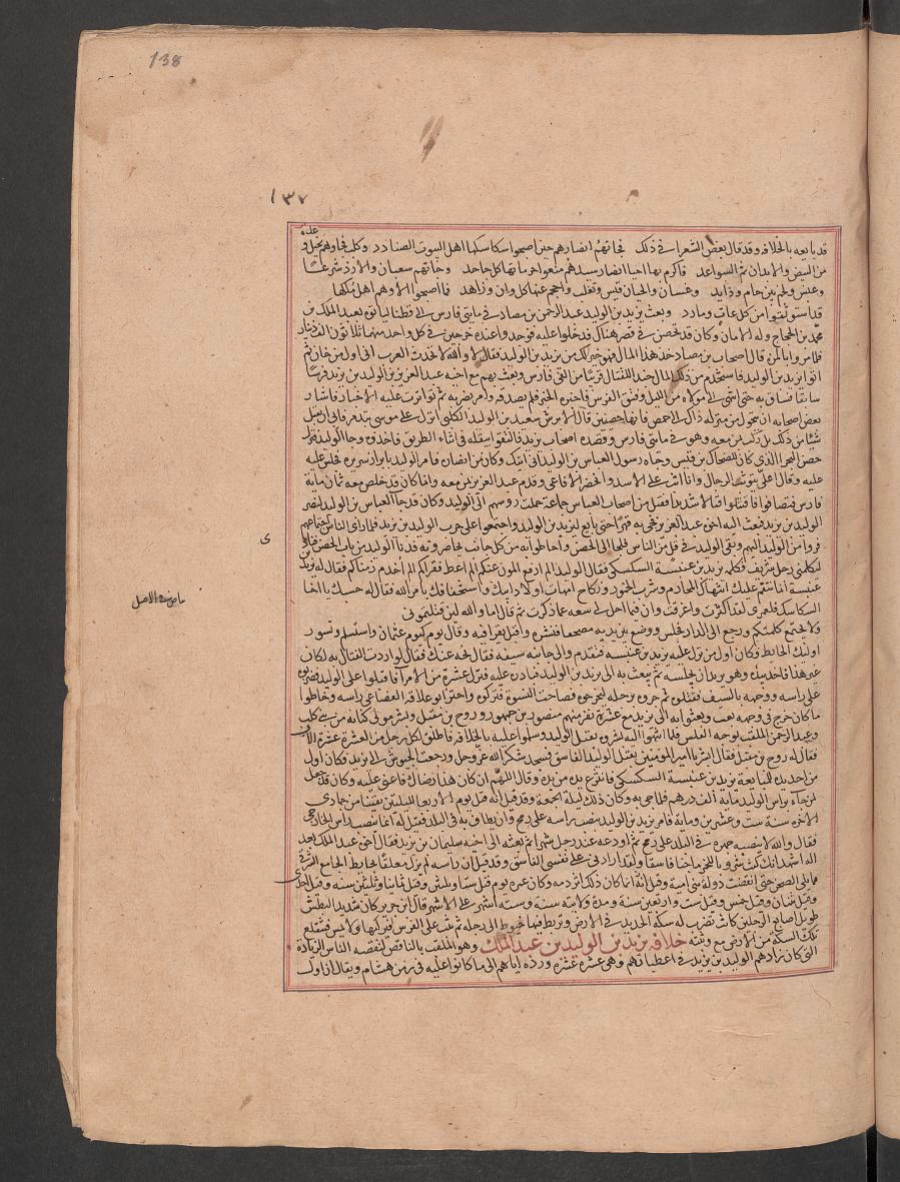 138
١٣٧
قد بايعه بالخلافة وقد قال بعض الشعرا في ذلك فجاتهم انصارهم حين اصبحوا سكاسكها اهل البيوت الصنادد وكلب فجاوهم بخيل وعدة
من البيض والابدان ثم السواعد فاكرم بها احيا انصار سنة هم منعوا حرماتها كل جاحد وجاتهم شعبان والازد شرعا
وعبس ولخم بين حام وذايد وغسان والحيان قيس وتغلب واحجم عنها كل وان وزاهد فما اصبحوا الا وهم اهل ملكها
قد استوثقوا من كل عات ومارد وبعث يزيد بن الوليد عبد الرحمن بن مصاد في مايتي فارس الى قطنا لياتوه بعبد الملك بن
محمد بن الحجاج وله الامان وكان قد تحصن في قصر هناك فدخلوا عليه فوجدوا عنده خرجين في كل واحد منهما ثلاثون الف دينار
فلما مروا بالمزة قال اصحاب بن مصاد خذ هذا المال فهو خير لك من يزيد بن الوليد فقال لا والله لا تحدث العرب اني اول من خان ثم
اتوا يزيد بن الوليد فاستخدم من ذلك المال جندا للقتال قريبا من الفي فارس وبعث بهم مع اخيه عبد العزيز بن الوليد بن يزيد فرسا
سابقا فساق به حتى انتهى الى مولاه من الليل وقد نفق الفرس فاخبره الخبر فلم يصدقه وامر بضربه ثم تواترت عليه الاخبار فاشار
بعض اصحابه ان يتحول من منزله ذاك الى حمص فانها حصينة وقال الابرش سعيد بن الوليد الكلبي انزل على قومي بتدمر فابى ان يقبل
شيئا من ذلك بل ركب بمن معه وهو في مايتي فارس وقصده اصحاب يزيد فالتقوا بثقله في اثناء الطريق فاخذوه وجا الوليد فنزل
حصن البخرا الذي كان للضحاك بن قيس وجاه رسول العباس بن الوليد اني اتيك وكان من انصاره فامر الوليد بابراز سريره فجلس عليه
عليه وقال علي يتوثب الرجال وانا اثب على الاسد واتخصر الافاعي وقدم عبد العزيز بن معه وانما كان قد خلص معه ثمان ماية
فارس فتصافوا فاقتتلوا قتالا شديدا فقتل من اصحاب العباس جماعة حملت روسهم الى الوليد وكان قد جا العباس بن الوليد لنصر
الوليد بن يزيد فبعث اليه اخوه عبد العزيز فجي به قهرا حتى بايع ليزيد بن الوليد واجتمعوا على حرب الوليد بن يزيد فلما راى الناس اجتماعهم
فروا من الوليد اليهم وبقي الوليد في قل من الناس فلجا الى الحصن واحاطوا به من كل جانب يحاصرونه فدنا الوليد من باب الحصن فنادى
ليكلمني رجل شريف فكلمه يزيد بن عنبسة السكسكي فقال الوليد الم ارفع المون عنكم الم اعط فقراكم الم اخدم زمناكم فقال له يزيد
عنبسة انما ننقم عليك انتهاك المحارم وشرب الخمور ونكاح امهات اولاد ابيك واستخفافك بامر الله فقال له حسبك يا اخا
السكاسك فلعمري لقد اكثرت واغرقت وان فيما احل لي سعة عما ذكرت ثم قال اما والله لين قتلتموني
ولا تجتمع كلمتكم ورجع الى الدار فجلس ووضع بين يديه مصحفا فنشره واقبل يقرا فيه وقال يوم كيوم عثمان واستسلم وتسور
اوليك الحايط فكان اول من نزل عليه يزيد بن عنبسة فتقدم والى جانبه سيفه فقال نحه عنك فقال لو اردت القتال به لكان
غير هذا فاخذ بيده وهو يريد ان يحبسه ثم يبعث به الى يزيد بن الوليد فبادر عليه فنزل عشرة من الامرا فاقبلوا على الوليد فضربوه
على راسه ووجهه بالسيف فقتلوه ثم جروه برجله ليخرجوه فصاحت النسوة فتركوه واحتز ابو علاقة القضاعي راسه وخاطوا
ما كان خرج في وجهه بعقب وبعثوا به الى يزيد مع عشرة نفر منهم منصور بن جمهور وروح بن مقبل وبشر مولى كنانة من بني كلب
وعبد الرحمن الملقب بوجه الفلس فلما انتهوا اليه بشروه بقتل الوليد وسلموا عليه بالخلافة فاطلق لكل رجل من العشرة عشرة الاف
فقال له روح بن مقبل فقال ابشر يا امير المومنين بقتل الوليد الفاسق فسجد شكرا لله عز وجل ورجعت الجيوش الى يزيد فكان اول
من اخذ يده للمبايعة يزيد بن عنبسة السكسكي فانتزع يده من يده وقال اللهم ان كان هذا رضا لك فاعني عليه وكان قد جعل
لمن جاه براس الوليد ماية الف درهم فلما جي به وكان ذلك ليلة الجمعة وقد قيل انه قتل يوم الاربعا لليلتين بقيتا من جمادى
الاخرة سنة ست وعشرين وماية فامر يزيد بن الوليد بنصب راسه على رمح وان يطاف به في البلد فقيل له انما تنصب راس الخارجي
فقال والله لانصبنه فشهره في البلد على رمح ثم اودعه عند رجل شهرا ثم بعثه الى اخيه سليمان بن يزيد فقال اخوه عبد الملك بعد
اله اشهد انك كنت شروبا للخمر ماجنا فاسقا ولقد ارادني على نفسي الفاسق وقد قيل ان راسه لم يزل معلقا بحايط الجامع الشرقي
مما يلي الصحن حتى انقضت دولة بني امية وقيل انما كان ذلك اثر دمه وكان عمره يوم قتل ستا وثلثين وقيل ثمانيا وثلثين سنة وقيل احدى
وقيل ثنتان وقيل خمس وقيل ست واربعين سنة ومدة ولايته سنة وستة اشهر على الاشهر قال ابن جرير كان شديد البطش
طويل اصابع الرجلين كانت تضرب له سكة الحديد في الارض ويربط فيها خيوط الى رجله ثم يثب على الفرس فيركبها ولا يمس فتنقلع
تلك السكة من الارض مع وثبته خلافة يزيد بن الوليد بن عبد الملك وهو الملقب بالناقص لنقصه الناس الزيادة
التي كان زادهم الوليد بن يزيد في اعطياتهم وهي عشرة عشرة ورده اياهم الى ما كانوا عليه في زمن هشام ويقال ان اول
ى
بياض في الاصل